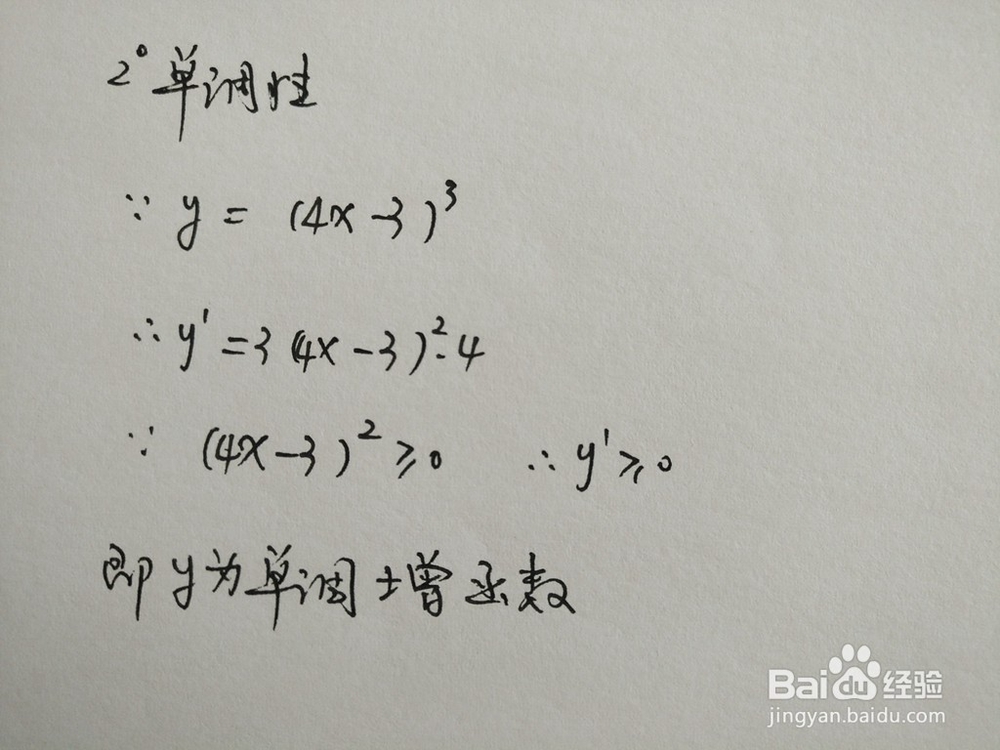 2° 单调性
∵ y = (4x-3)³
∴ y' = 3(4x-3)²·4
∵ (4x-3)² ≥ 0 ∴ y' ≥ 0
即y为单调增函数
Baidu经验
jingyan.baidu.com